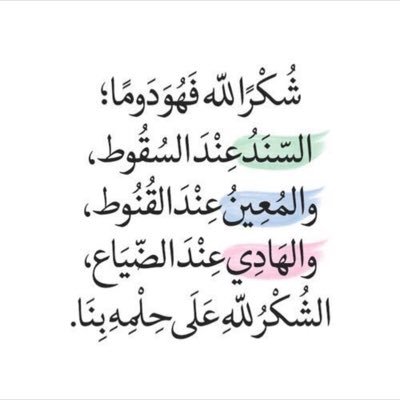 شُكْرًا لله فَهُوَ دَومًا؛
السّنَدُ عِنْدَ السُقُوط،
والمُعِينُ عِنْدَ القُنُوط،
والهَادِي عِنْدَ الضّيَاع،
الشُكْرُ للّهِ عَلَى حِلْمِهِ بِنَا.